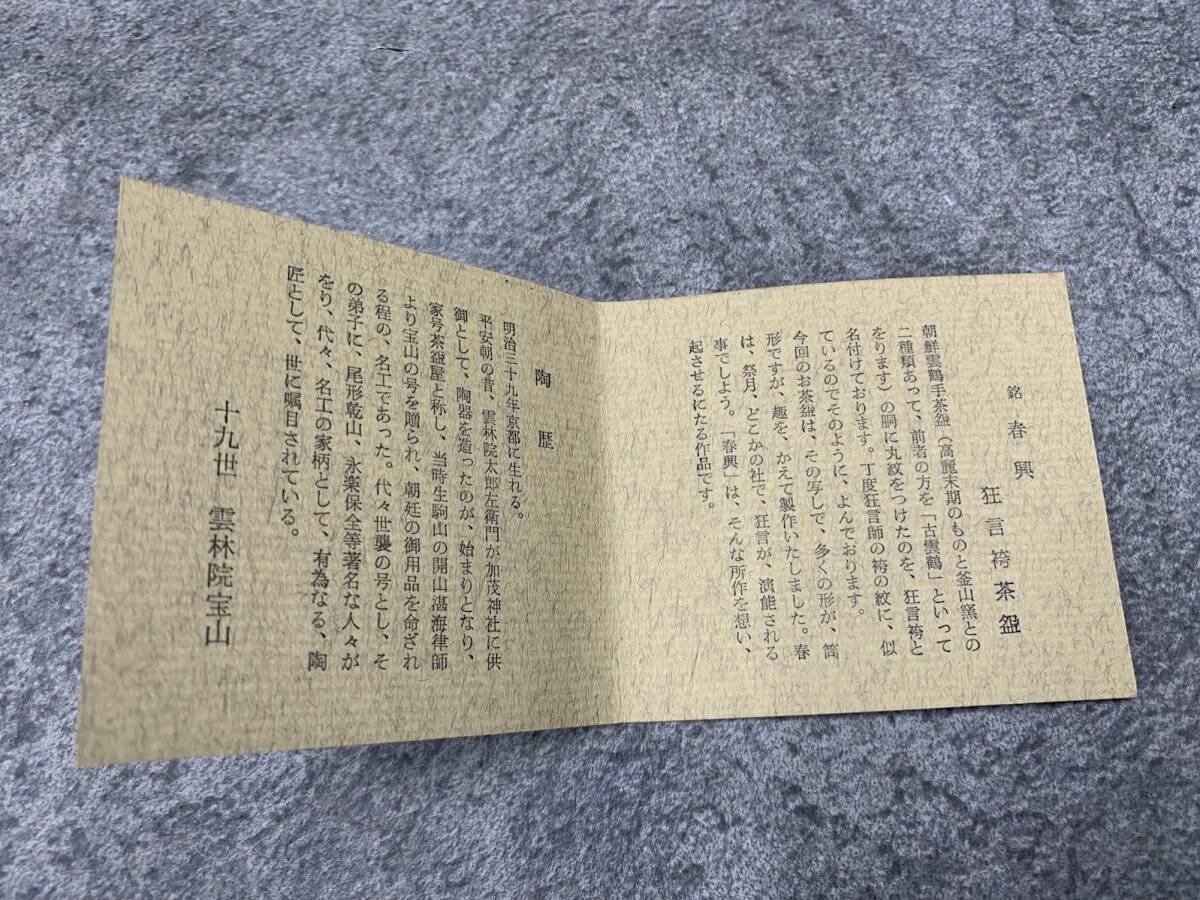 銘 春興
狂言袴茶盌
朝鮮雲鶴手茶盌（高麗末期のものと釜山窯との
二種類あって、前者の方を「古雲鶴」といって
をります）の胴に丸紋をつけたのを、狂言袴と
名付けております。丁度狂言師の袴の紋に、似
ているのでそのように、よんでおります。
今回のお茶盌は、その写しで、多くの形が、筒
形ですが、趣を、かえて製作いたしました。春
は、祭月、どこかの社で、狂言が、演能される
事でしよう。「春興」は、そんな所作を想い、
起させるにたる作品です。
陶歴
明治三十九年京都に生れる。
平安朝の昔、雲林院太郎左衛門が加茂神社に供
御として、陶器を造ったのが、始まりとなり、
家号茶盌屋と称し、当時生駒山の開山湛海律師
より宝山の号を贈られ、朝廷の御用品を命ざれ
る程の、名工であった。代々世襲の号とし、そ
の弟子に、尾形乾山、永楽保全等著名な人々が
をり、代々、名工の家柄として、有為なる、陶
匠として、世に嘱目されている。
十九世 雲林院宝山